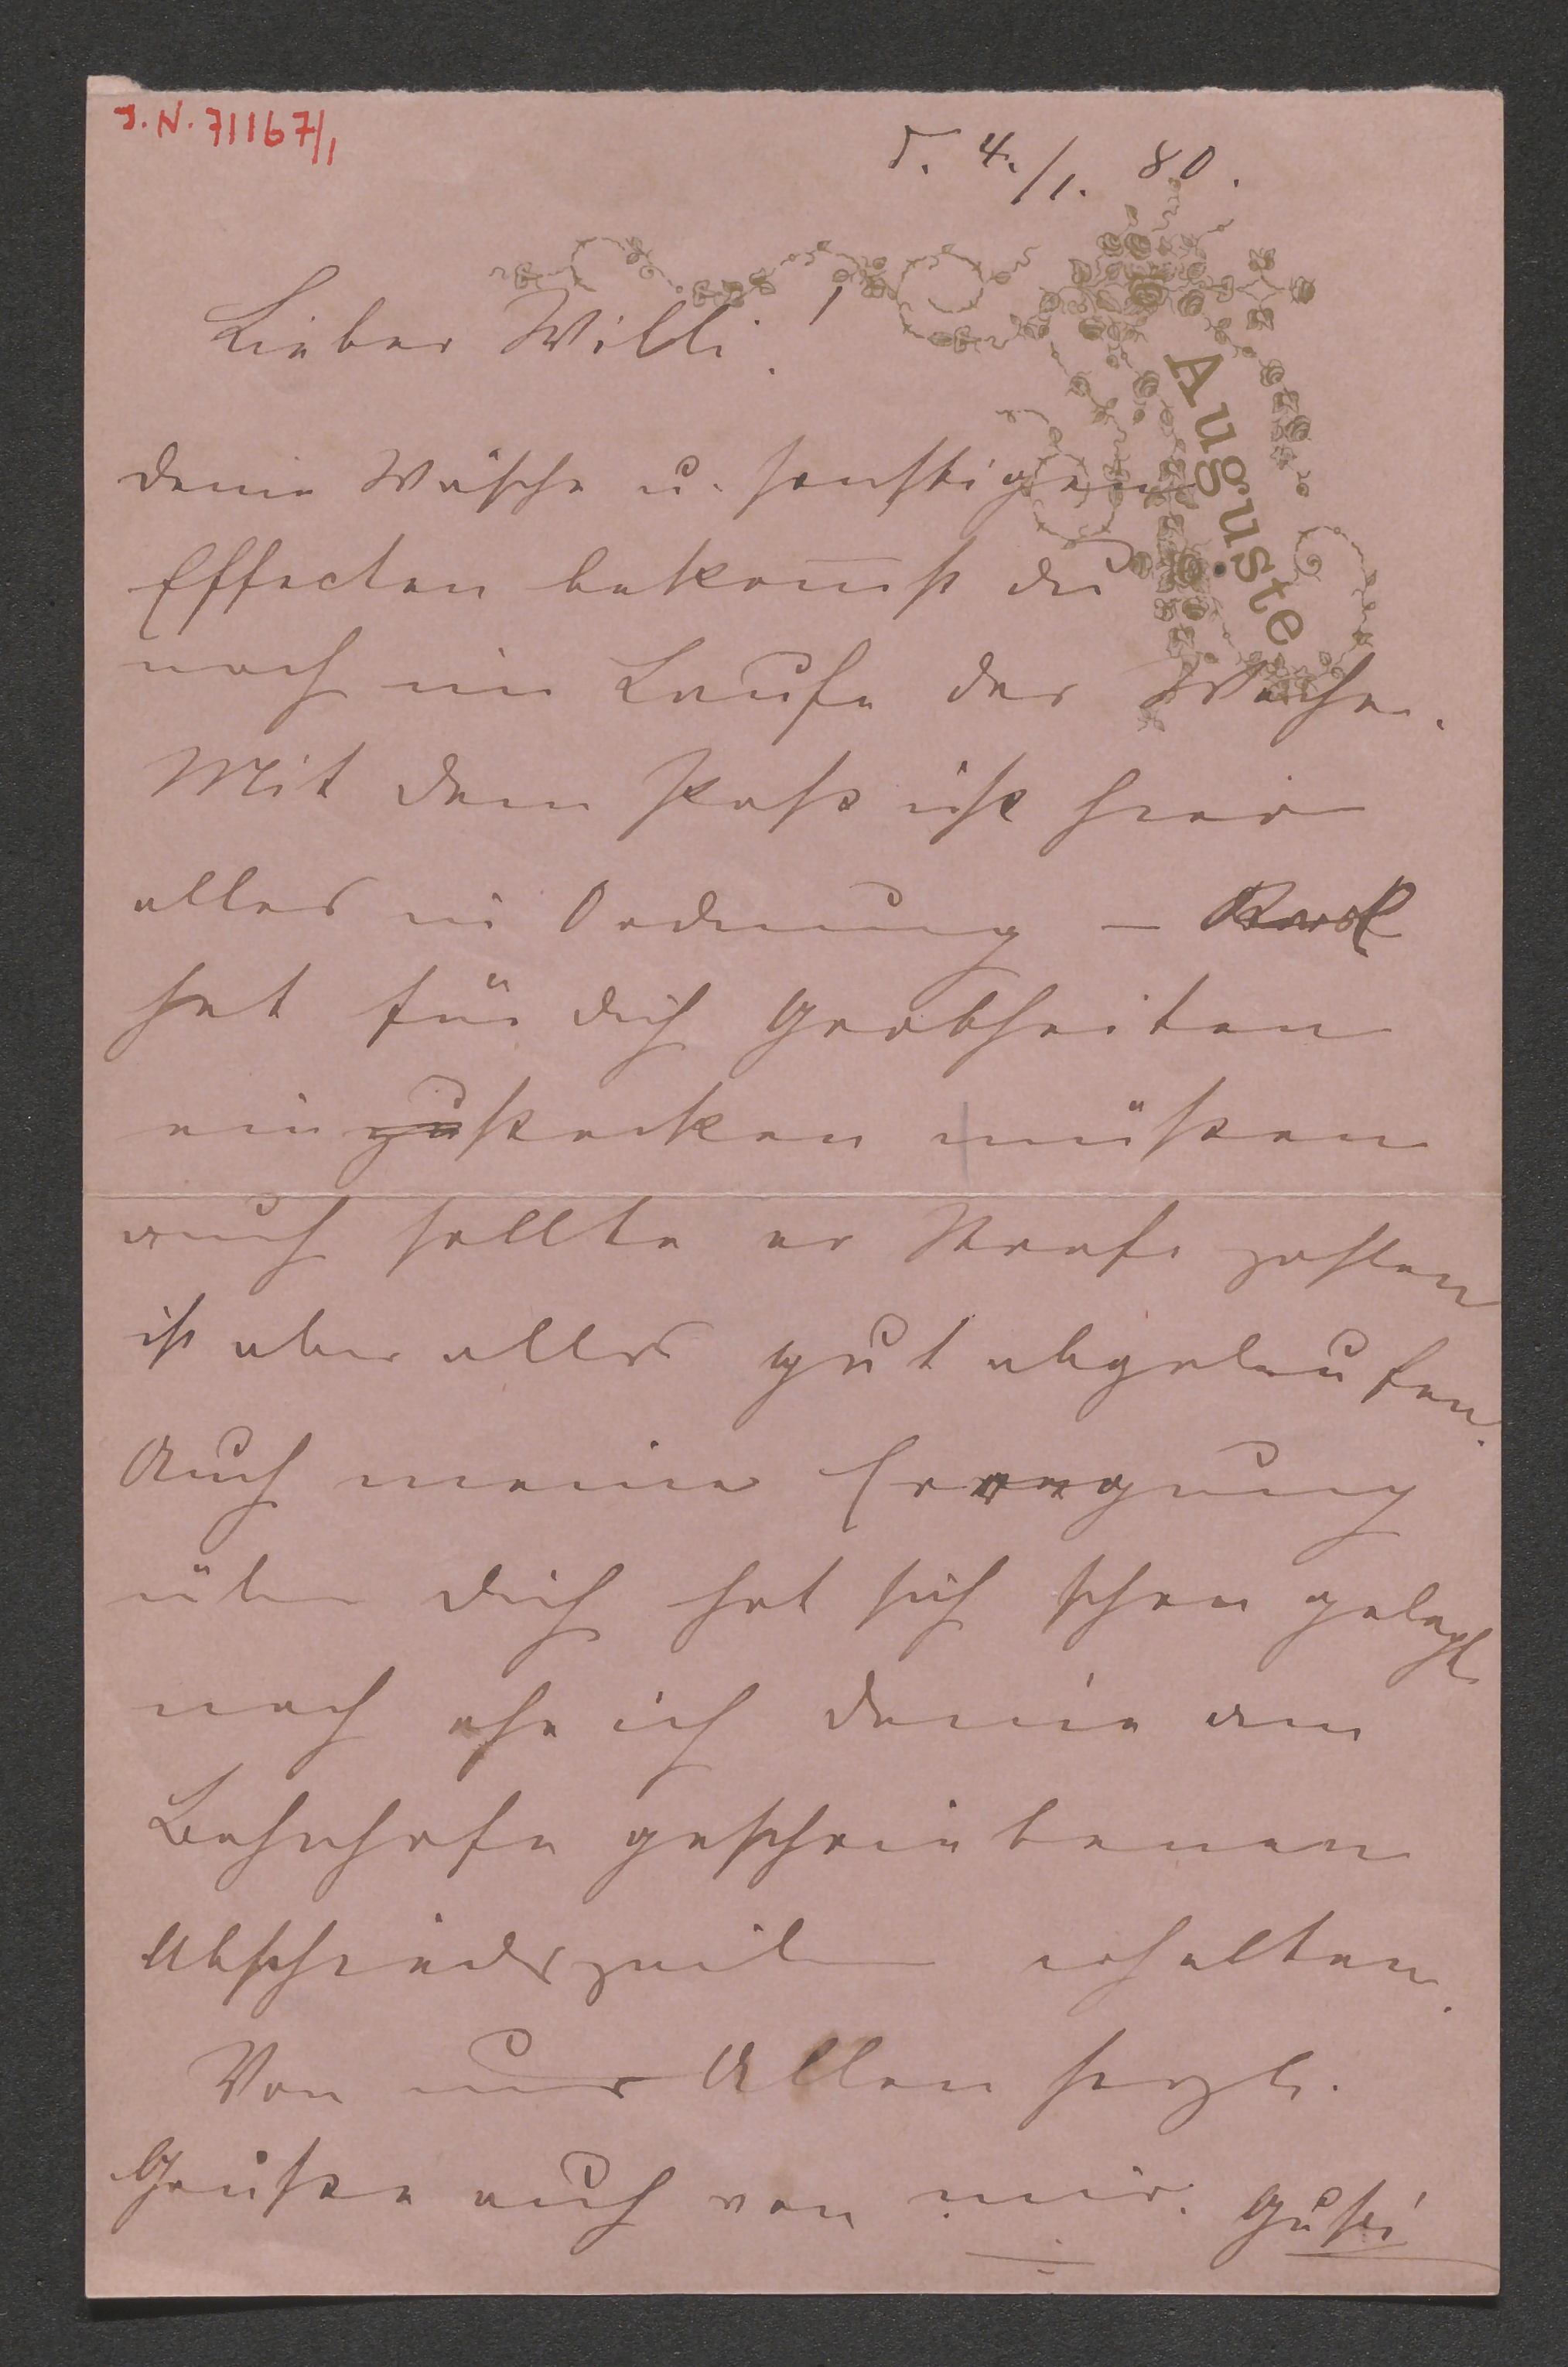 J.N. 71167/1
d. 4./1. 80.
Auguste
Lieber Willi!
deine Wäsche u. sonstigen
Effecten bekom̅st du
noch im Laufe der Woche.
Mit dem Paß ist hier
alles in Ordnung –
hat für dich Grobheiten
einzustecken müßen
auch sollte er Strafe zahlen
ist aber alles gut abgelaufen.
Auch meine Erregung
über dich hat sich schon gelegt
noch ehe ich deine am
Bahnhofe geschriebenen
Abschiedszeilen erhalten.
Von uns Allen herzl.
Grüße auch von mir. Gusti